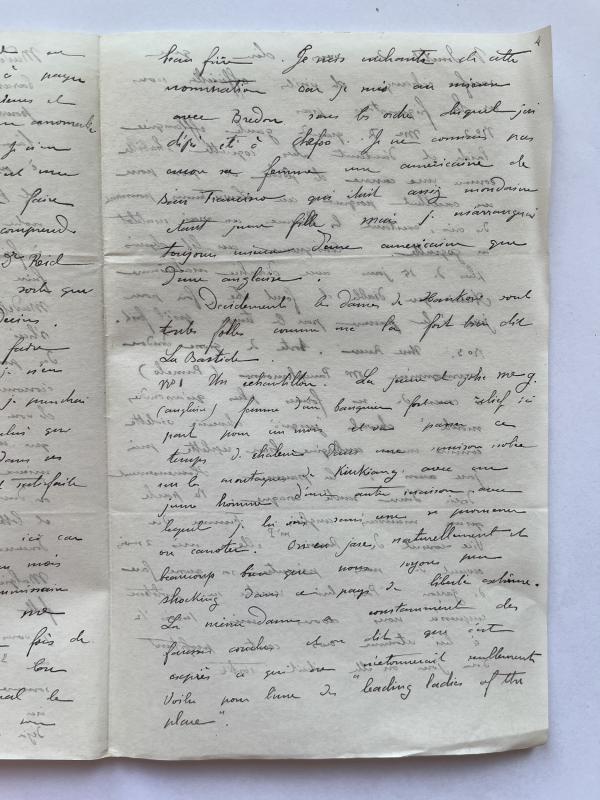 4
beau frère. Je suis enchanté de cette
nomination car je suis au mieux
avec Bredon sous les ordres duquel j'ai
déjà été à Chefoo. Je ne connais pas
encore sa femme une américaine de
San Francisco qui était assez mondaine
étant jeune fille mais je m'arrangerai
toujours mieux d'une américaine que
d'une anglaise.
Décidément les dames de Hankow sont
toutes folles comme me l'a fort bien dit
La Bastide.
No 1 Un échantillon. La jeune et jolie me G.
(anglaise) femme d'un banquier fort en relief ici
part pour un mois et va passer ce
temps de chaleur dans une maison isolée
sur la montagne de Kiukiang avec un
jeune homme d'une autre maison avec
lequel je lui vois sans cesse se promener
ou canoter. On en jase naturellement et
beaucoup bien que nous soyons peu
shocking dans ce pays de liberté extrême.
La même dame a constamment des
fausses couches et on dit que c'est
exprès ce qui ne m'étonnerait nullement
Voilà pour l'une des "leading ladies of the
place".
ou
à
et
Je n'en
une
faire
comprends
Reid
sorte que
faire
je n'en
je prendrai
que
dans ses
satisfaite
ici car
mois
me
fois de
le